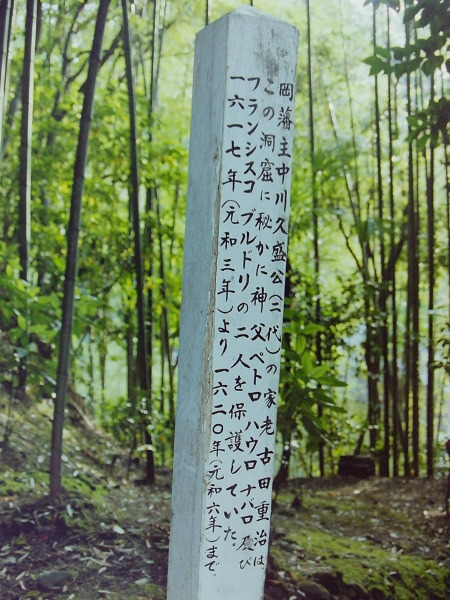 岡藩主中川久盛公(二代)の家老古田重治は、
この洞窟に秘かに神父ペトロ ハウロ ナバロ及び
フランシスコ ブルドリの二人を保護していた。
一六一七年(元和三年)より一六二〇年(元和六年)まで。